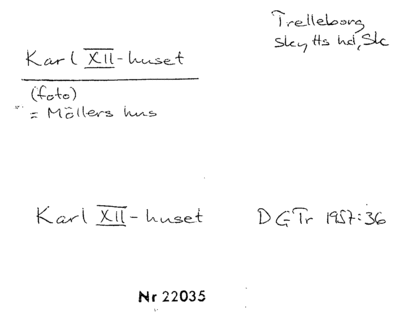 Trelleborg
Skytts hd, Sk
Karl XII-huset
(foto)
= Möllers hus
Karl XII-huset DGTr 1957:36
Nr 22035